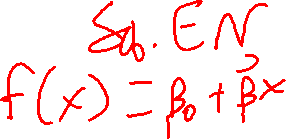 Eq. EN
f(x) = β₀ + β⃗x